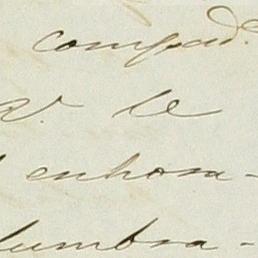 compad.
V. le
enhora-
lumbra-